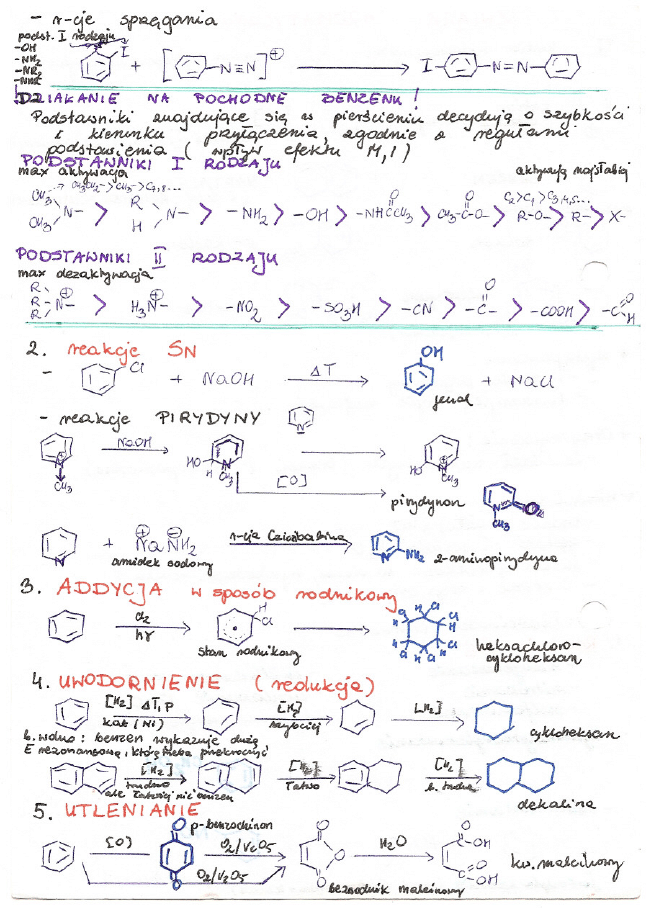 - r-cje sprzęgania
podst. I rodzaju
-OH
-NH2
-NR2
-NHR
I + [ -N≡N ]⊕ → I- -N=N-
DZIAŁANIE NA POCHODNE BENZENU!
Podstawniki znajdujące się w pierścieniu decydują o szybkości
i kierunku przyłączenia, zgodnie z regułami
podstawienia ( wpływ efektu M, I )
PODSTAWNIKI I RODZAJU
max aktywacja aktywują najsłabiej
CH3CH2- > CH3- > C3,8... C2>C1>C3,4,5...
CH3 CH3 N- > R H N- > -NH2 > -OH > -NHCCH3 O > CH3-C-O- O > R-O- > R- > X-
PODSTAWNIKI II RODZAJU
max dezaktywacja
R R R N⊕- > H3N⊕- > -NO2 > -SO3H > -CN > -C- O > -COOH > -C O H
2. reakcje SN
- Cl + NaOH ΔT → OH + NaCl
fenol
- reakcje PIRYDYNY N
N CH3 NaOH → HO H N CH3 → HO N⊕ CH3
[O]
pirydynon N CH3 O
N + Na⊕ NH2⊖ r-cja Cziczibabina → N NH2 2-aminopirydyna
amidek sodowy
3. ADDYCJA w sposób rodnikowy
Cl2 hγ → H Cl → H Cl H Cl H Cl H Cl H Cl H Cl
stan rodnikowy
heksachloro-
cykloheksan
4. UWODORNIENIE ( redukcja)
[H2] ΔT, P kat (Ni) → [H2] szybciej → [H2] → cykloheksan
b. wolno: benzen wykazuje dużą
E rezonansową, którą trzeba przekroczyć
[H2] trudno ale łatwiej niż benzen → [H2] łatwo → [H2] b. trudno →
dekalina
5. UTLENIANIE
p-benzochinon
[O] → O O O2/V2O5 → O O O H2O → O C OH C OH O kw. maleinowy
O2/V2O5
bezwodnik maleinowy